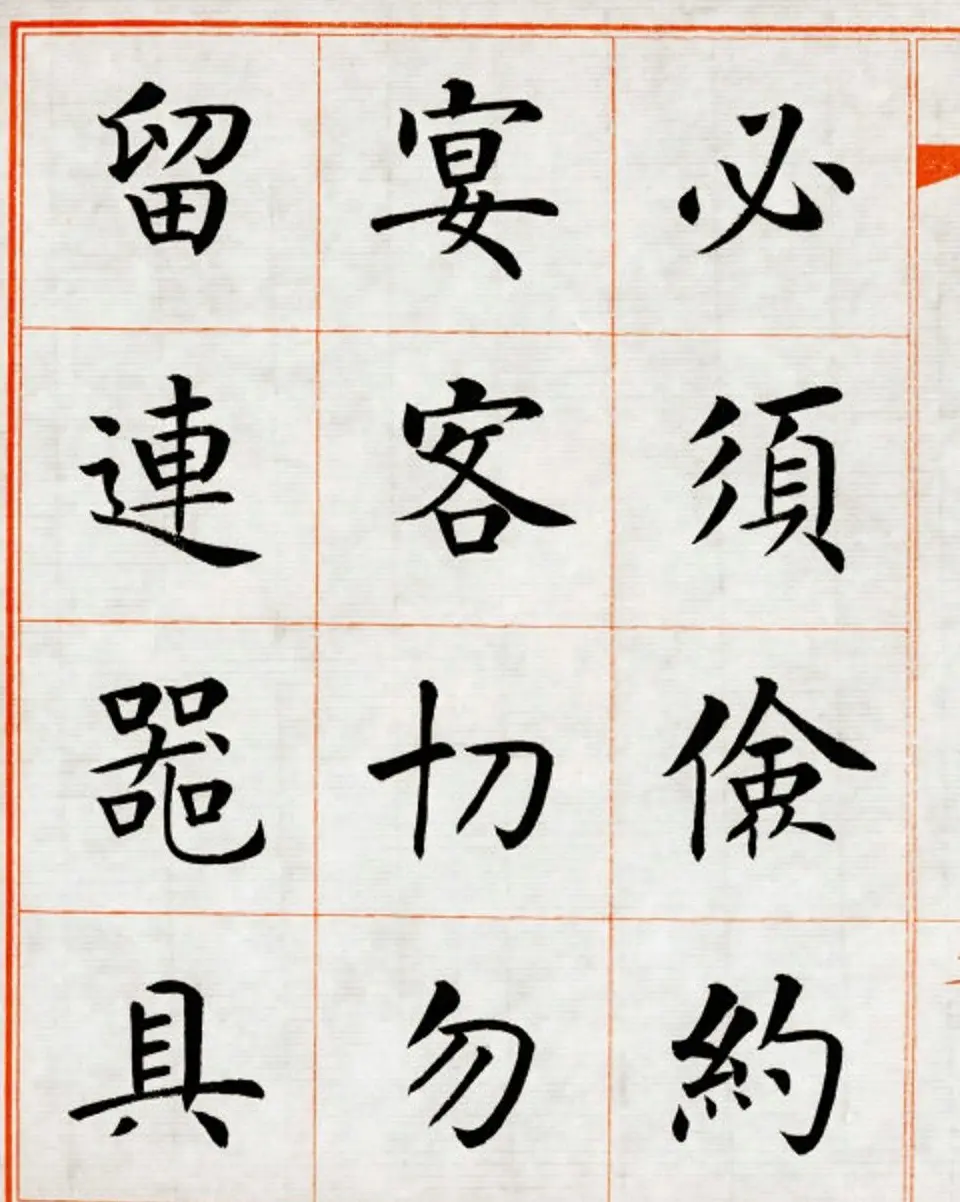 必須儉約
宴客切勿
留連器具